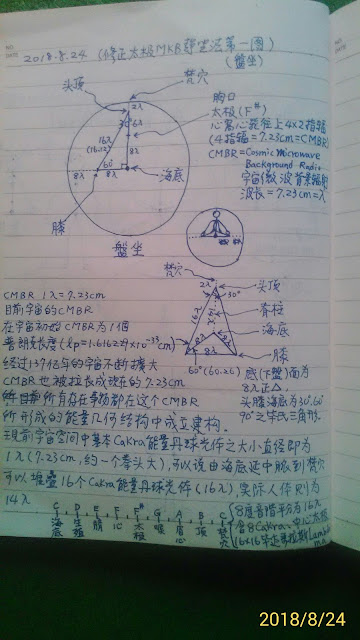 NO.
DATE
NO.
DATE
2018.8.24 (修正太極MKB靜坐法第一圖)
(盤坐)
头顶
梵穴
2λ
6λ
16λ
(16.12)
8λ
60°
8λ
8λ
膝
海底
盤坐
胸口
太極(F#)
心黑心輪往上4×2指幅
(4指幅=7.23cm=CMBR)
CMBR=Cosmic Microwave
Background Radia
宇宙微波背景輻射
波長=7.23cm=λ
梵穴
2λ
头顶
30°
脊柱
16λ
14λ
海底
8λ
8λ
8λ
膝
60°(60.26)
底(下盤)面为
8λ正△
头膝海底为30°,60°
90°之毕氏三角形。
CMBR 1λ=7.23cm
目前宇宙的CMBR
在宇宙初始CMBR为1個
普朗克長度(ℓp=1.616229×10⁻³³cm)
经过137億年的宇宙不断擴大
CMBR也被拉長成現在的7.23cm
目前所有存在事物都在這个CMBR
所形成的能量几何结构中成立建構。
現前宇宙空间中基本Cakra能量丹球光体之大小直径即为
1λ(7.23cm,約一个拳头大),可以說由海底延中脈到梵穴
可以堆疊16个Cakra能量丹球光体(16λ),实际人体則为
14λ
C D E F F# G A B C
海底 生殖 臍 心 太極 喉 眉心 顶 梵穴
8度音階平分为16λ
含8Cakra+中心太極
2018/8/24